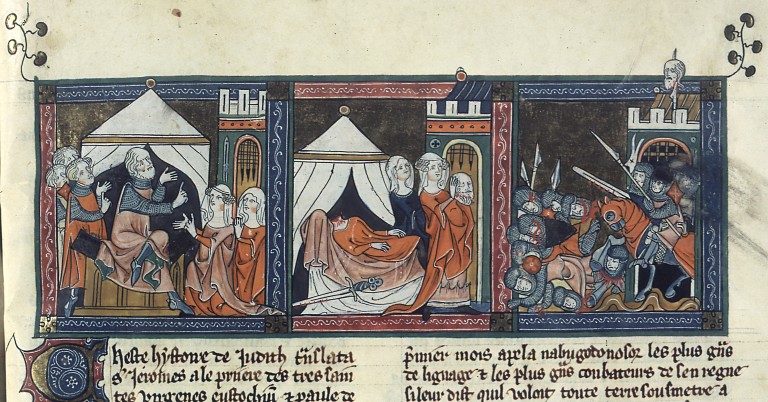 Cheste hystoire de Judith tnslata
st Jeromes a le priiere des tres sain
tes virgenes eustochiu et paule de
pimier mois apela nabugodonosor les plus gns
de lignage et les plus gns conbateurs de sen regne
si leur dist quil voloit toute terre sousmetre a